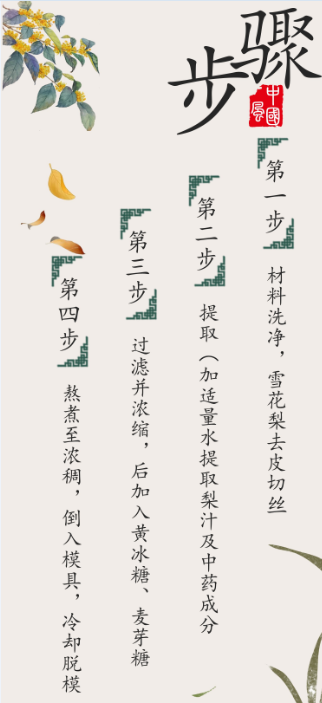 步骤
中国风
第一步
材料洗净，雪花梨去皮切丝
第二步
提取（加适量水提取梨汁及中药成分
第三步
过滤并浓缩，后加入黄冰糖、麦芽糖
第四步
熬煮至浓稠，倒入模具，冷却脱模